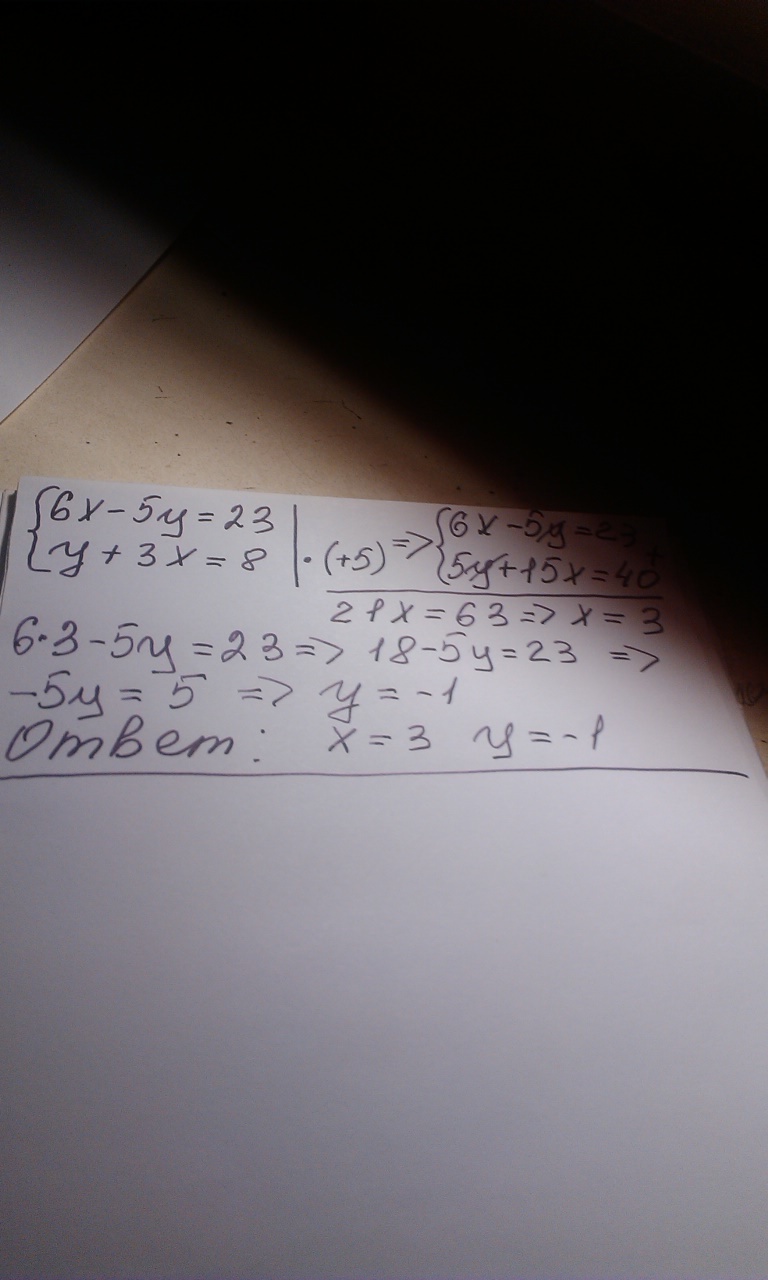 {6x-5y=23 | => {6x-5y=23 +
{y+3x=8 | ·(+5) {5y+15x=40
21x=63=> x=3
6·3-5y=23=> 18-5y=23 =>
-5y=5 => y=-1
Ответ: x=3 y=-1